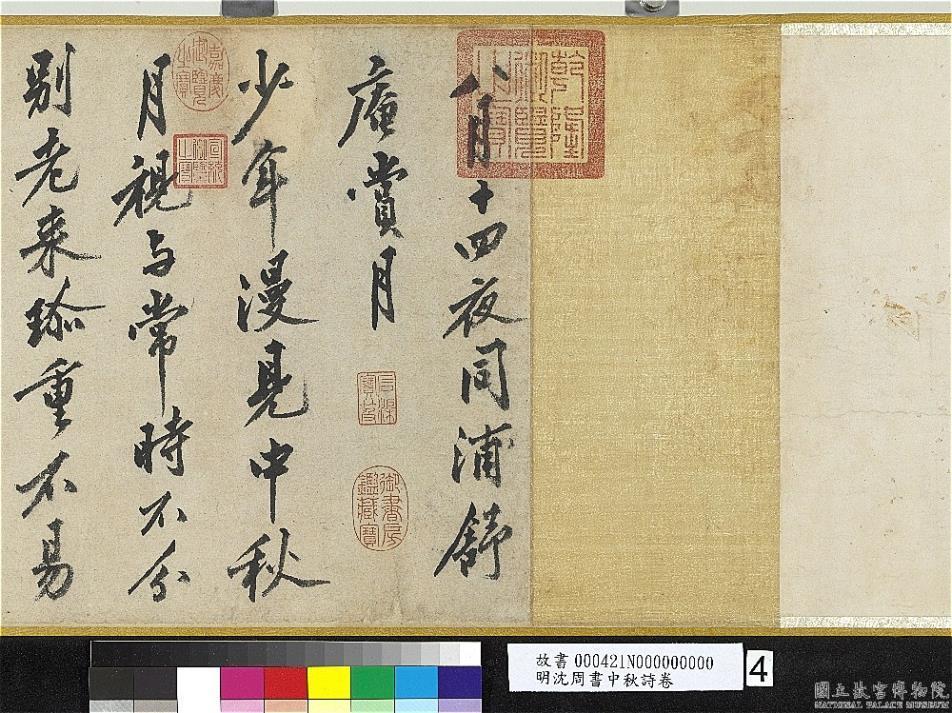 乾隆御覽之寶
八月十四夜同浦舒
庵賞月
石渠寶笈
御書房鑑藏寶
少年漫見中秋
嘉慶御覽之寶
宣統御覽之寶
月視与常時不分
別老来珎重不易
故書 000421N000000000
明沈周書中秋詩卷
4
國立故宮博物院
NATIONAL PALACE MUSEUM